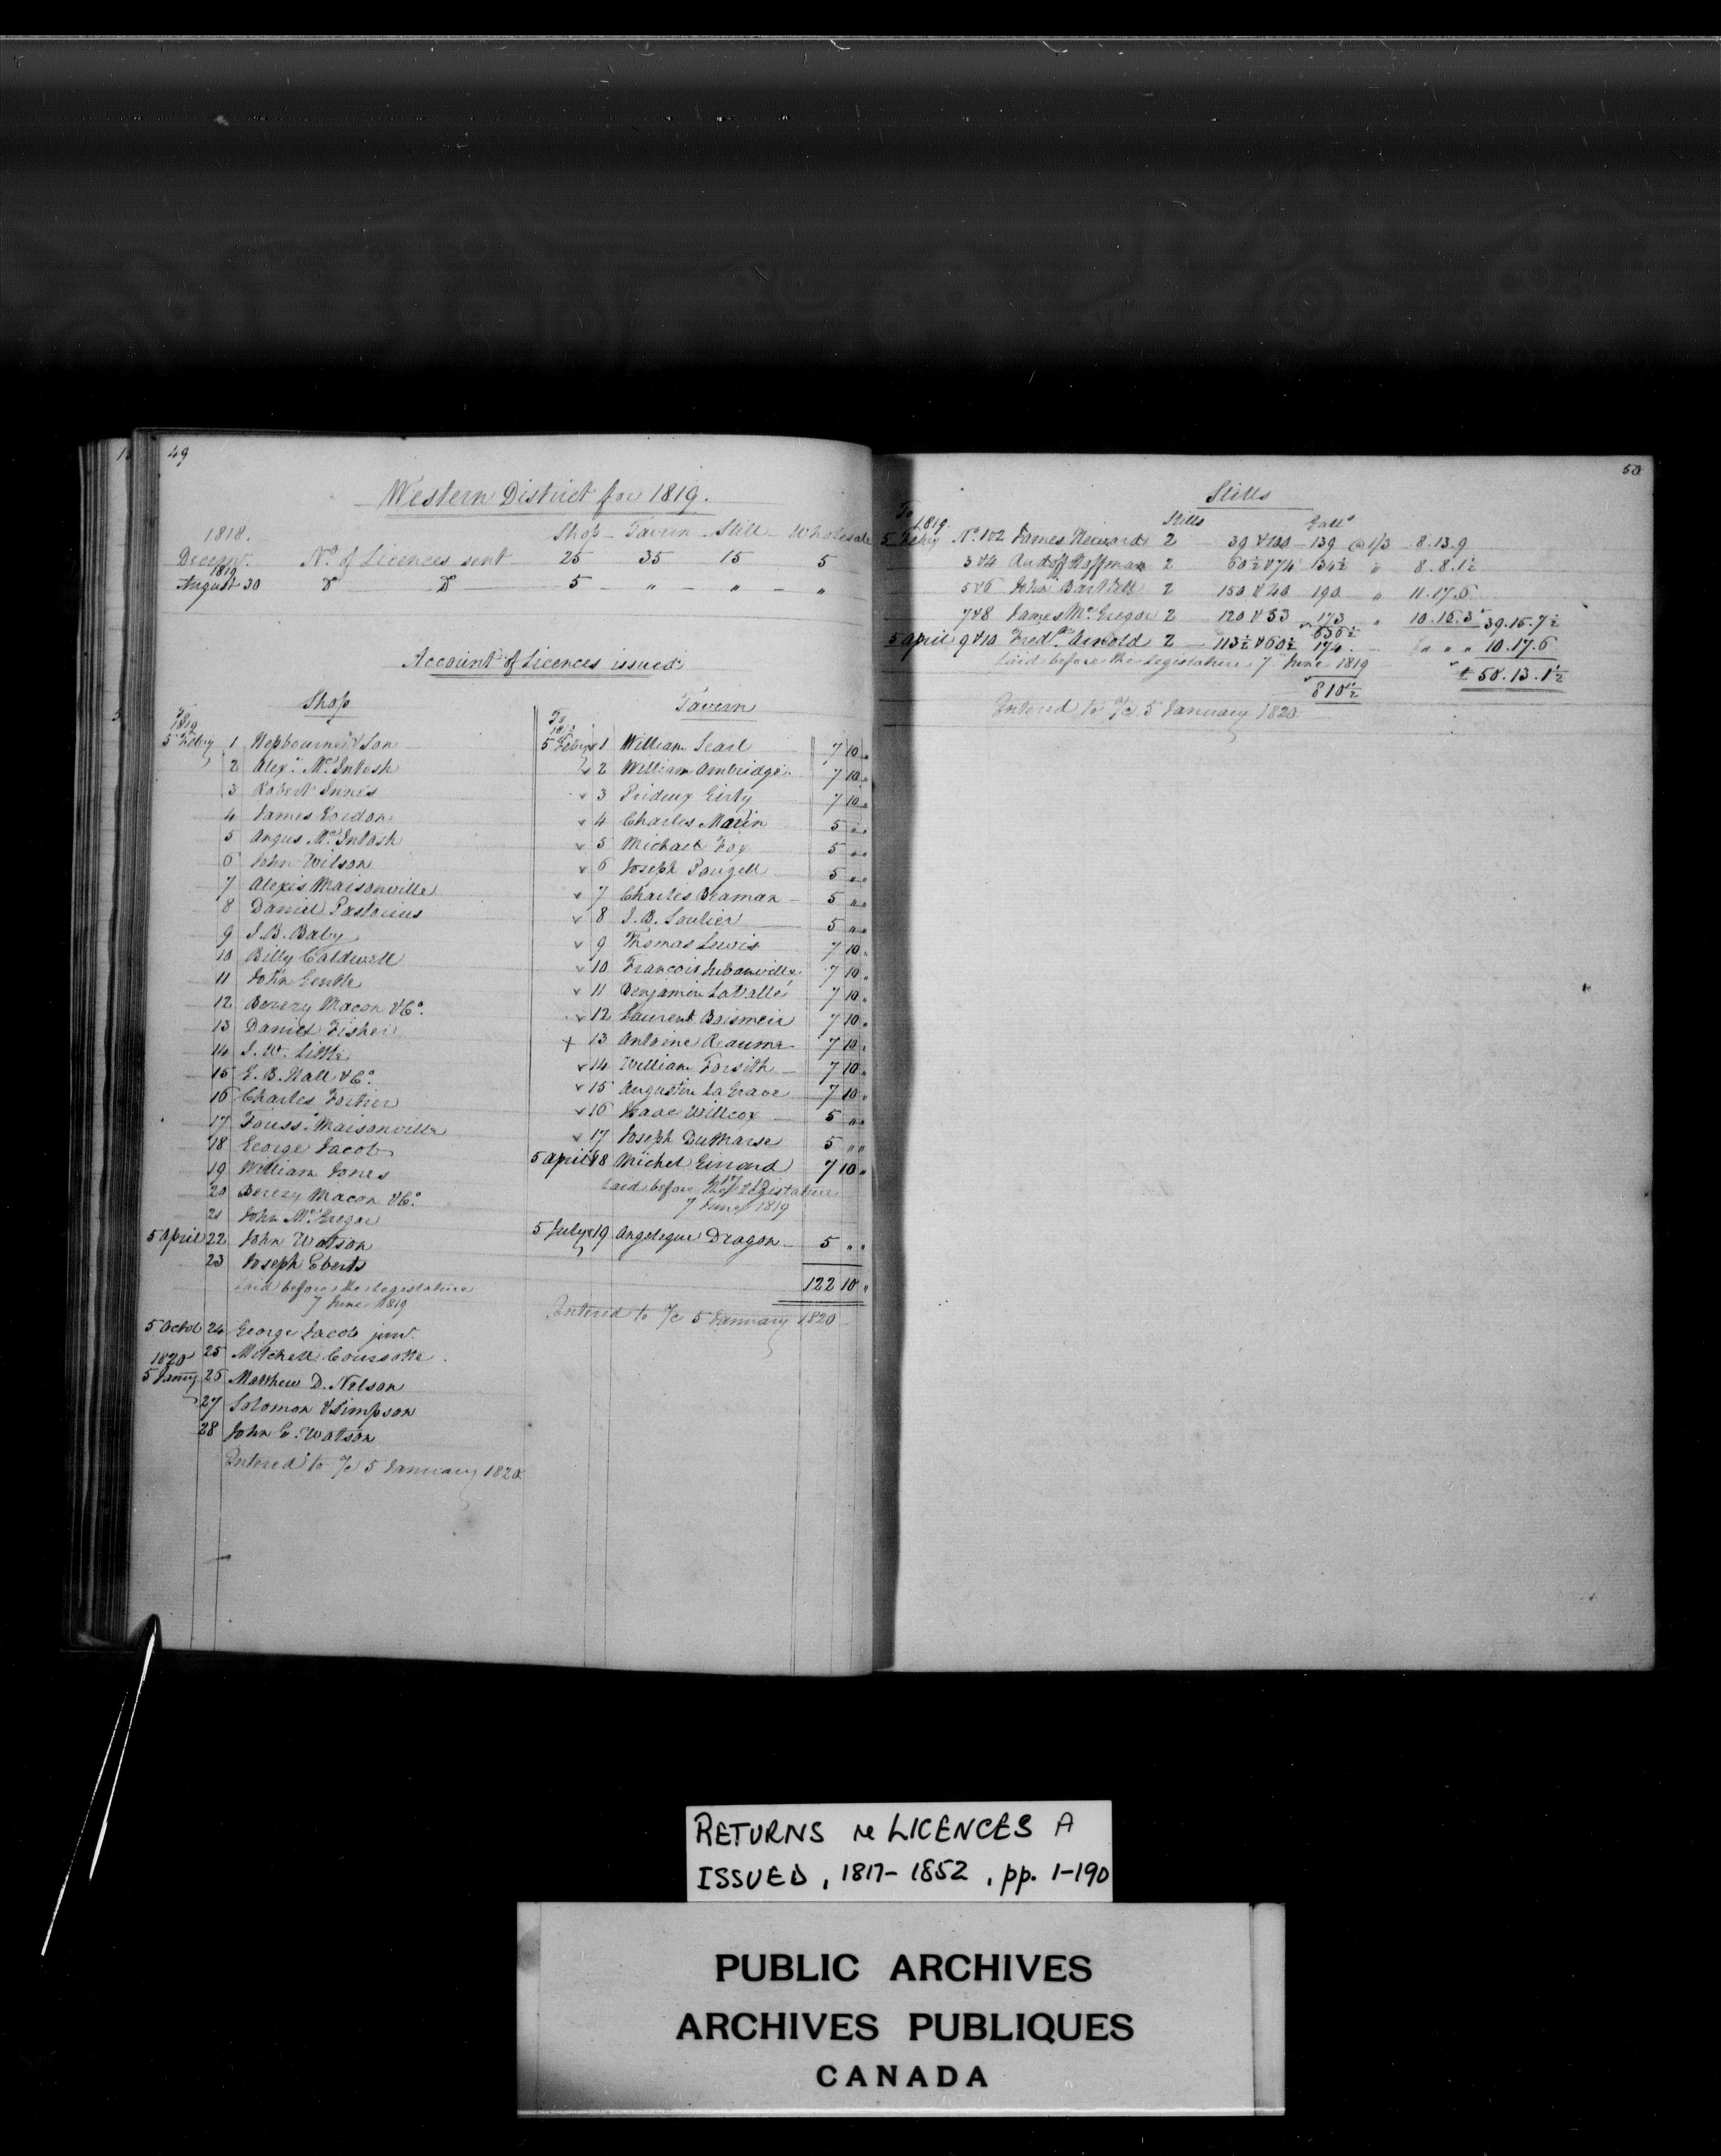 49
Western District for 1819.
1818. Shop - Tavern - Still - Wholesale
Decemr. No. of Licences sent 25 35 15 5
1819
August 30 Do Do 5 - " - " - "
Account of Licences issued
Shop
To
1819
5 Febry 1 Hepbourne & Son
2 Alexr. McIntosh
3 Robert Innes
4 James Gordon
5 Angus McIntosh
6 John Wilson
7 Alexis Maisonville
8 Daniel Pastorius
9 J. B. Baby
10 Billy Caldwell
11 John Gentle
12 Berezy Macon & Co.
13 Daniel Fisher
14 J. W. Little
15 E. B. Hall & Co.
16 Charles Fortier
17 Touss. Maisonville
18 George Jacob
19 William Jones
20 Berezy Macon & Co.
21 John McGregor
5 April 22 John Watson
23 Joseph Eberts
Laid before the Legislature
7 June 1819
5 Octob 24 George Jacob junr.
25 Mitchell Coursotte
1820
5 Janry 26 Matthew D. Nelson
27 Solomon & Simpson
28 John G. Watson
Entered to a/c 5 January 1820
Tavern
To
1819
5 Febry 1 William Searl 7 10 "
2 William Ambridge 7 10 "
3 Prideux Girty 7 10 "
4 Charles Marin 5 " "
5 Michael Fox 5 " "
6 Joseph Pougell 5 " "
7 Charles Beaman 5 " "
8 J. B. Soulier 5 " "
9 Thomas Lewis 7 10 "
10 Francois 7 10 "
11 Benjamin LaVallé 7 10 "
12 Laurent Boismeir 7 10 "
+ 13 Antoine Reaume 7 10 "
14 William Forsith 7 10 "
15 Augustin La Grave 7 10 "
16 Isaac Willcox 5 " "
17 Joseph DuMarse 5 " "
5 April 18 Michel Einord 7 10 "
Laid before the Legislature
7 June 1819
5 July 19 Angelique Dragon 5 " "
122 10 "
Entered to a/c 5 January 1820
50
Stills
To
1819. Stills Galls
5 Febry No. 1&2 James Heward 2 39 & 100 - 139 @ 1/3 8.13.9
3&4 Hoffman 2 60½ & 74 134½ " 8.8.1½
5&6 John Bartlett 2 150 & 40 190 " 11.17.6
7&8 James McGregor 2 120 & 53 173 " 10.16.3 39.15.7½
636½
5 April 9&10 Fredk. Arnold 2 - 113½ & 60½ 174. " " " 10.17.6
Laid before the Legislature 7 June 1819
£ 50.13.1½
810½
Entered to a/c 5 January 1820
RETURNS re LICENCES A
ISSUED, 1817-1852, pp. 1-190
PUBLIC ARCHIVES
ARCHIVES PUBLIQUES
CANADA